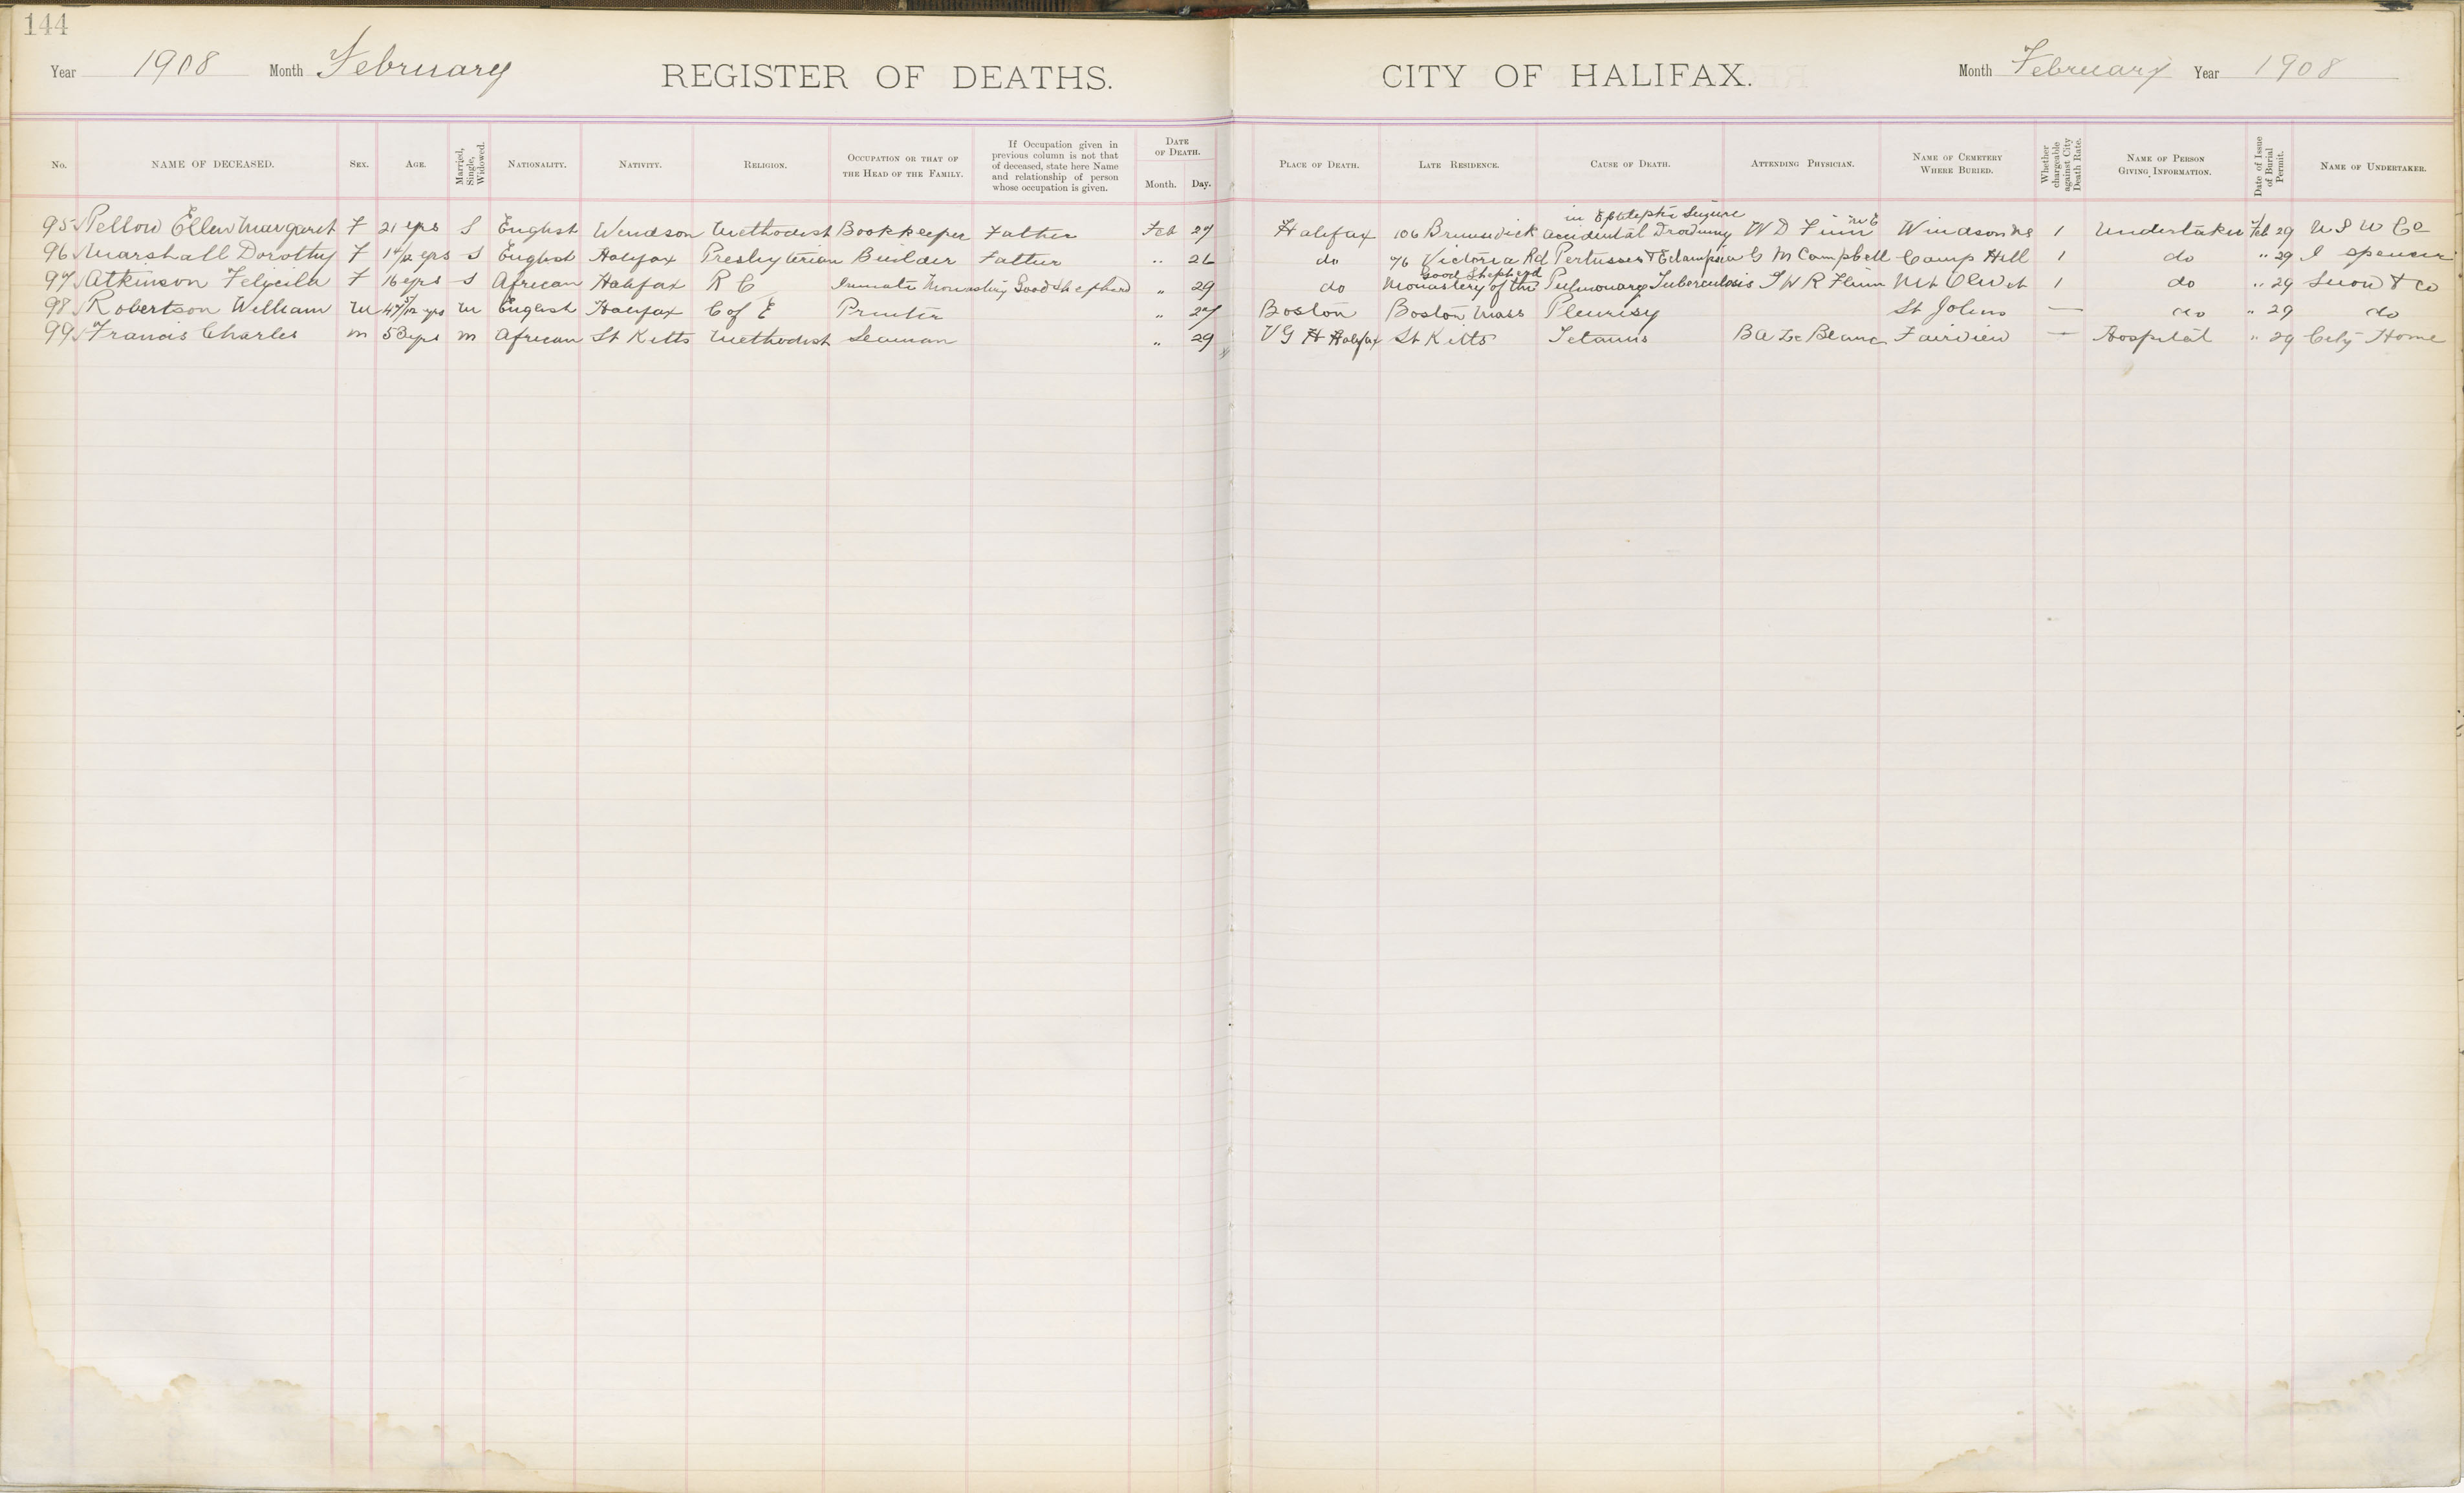 144
Year 1908 Month February REGISTER OF DEATHS. CITY OF HALIFAX. Month February Year 1908
No. NAME OF DECEASED. SEX. AGE. Married, Single, Widowed. NATIONALITY. NATIVITY. RELIGION. OCCUPATION OR THAT OF THE HEAD OF THE FAMILY. If Occupation given in previous column is not that of deceased, state here Name and relationship of person whose occupation is given. DATE OF DEATH. Month. Day. PLACE OF DEATH. LATE RESIDENCE. CAUSE OF DEATH. ATTENDING PHYSICIAN. NAME OF CEMETERY WHERE BURIED. Whether chargeable against City Death Rate. NAME OF PERSON GIVING INFORMATION. Date of Issue of Burial Permit. NAME OF UNDERTAKER.
95 Pellow Ellen Margaret F 21 yrs S English Windsor Methodist Bookkeeper Father Feb 27 Halifax 106 Brunswick accidental Drowning in Epileptic Seizure W D Finn M E Windsor NS 1 Undertaker Feb 29 N S U Co
96 Marshall Dorothy F 1 4/12 yrs S English Halifax Presbyterian Builder Father " 26 do 76 Victoria Rd Pertussis & Eclampsia G M Campbell Camp Hill 1 do " 29 J Spencer
97 Atkinson F 16 yrs S African Halifax R C Inmate Monastery Good Shepherd " 29 do Monastery of the Good Shepherd Pulmonary Tuberculosis T W R Flinn Mt Olivet 1 do " 29 Snow & Co
98 Robertson William M 47 5/12 yrs M English Halifax C of E Printer " 27 Boston Boston Mass Pleurisy St Johns — do " 29 do
99 Francis Charles M 53 yrs M African St Kitts Methodist Seaman " 29 V G H Halifax St Kitts Tetanus B A Le Blanc Fairview — Hospital " 29 City Home